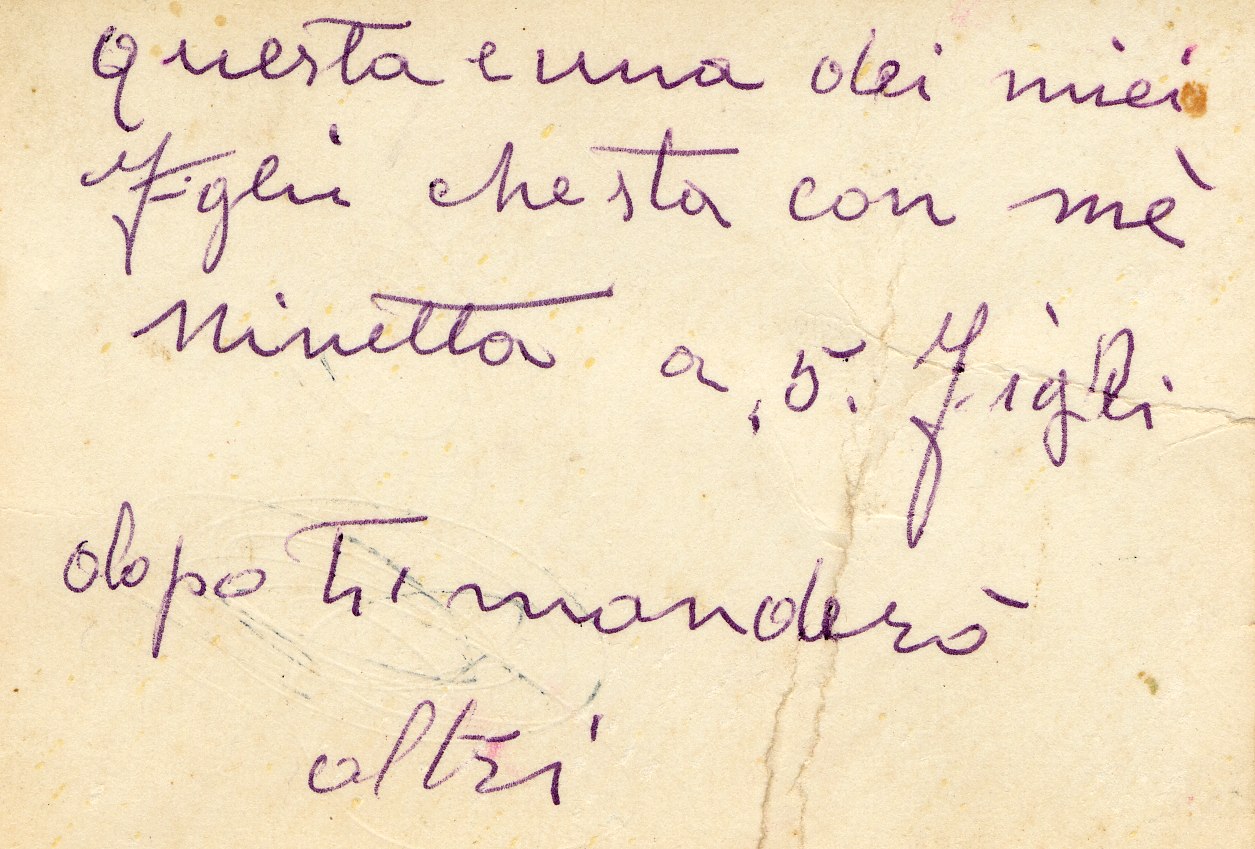 questa e una dei miei
Figli che sta con mè
ninetta a 5. Figli
dopo ti manderò
altri